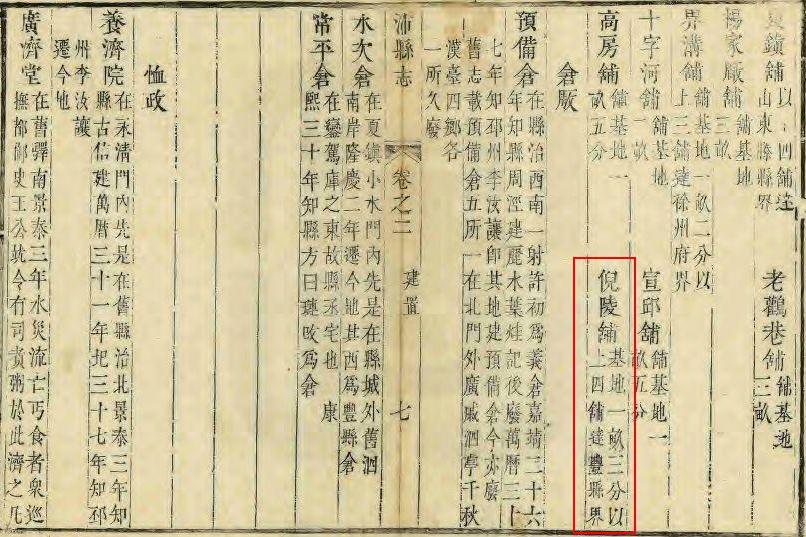 夏鎮舖以上四舖達
山東滕縣界
老鸛巷舖舖基地
三畝
楊家厰舖舖基地
三畝
界溝舖舖基地一畝二分以
上三舖達徐州府界
十字河舖舖基地
二畝
宣邱舖舖基地一
畝五分
高房舖舖基地一
畝五分
倪陵舖基地一畝三分以
上四舖達豐縣界
倉厫
預備倉在縣治西南一射許初爲義倉嘉靖二十六
年知縣周涇建麗水葉烓記後廢萬曆三十
七年知邳州李汝讓卽其地建預備倉今亦廢
舊志載預備倉五所一在北門外廣戚泗亭千秋
漢臺四鄉各
一所久廢
沛縣志 卷之二 建置 七
水次倉在夏鎮小水門內先是在縣城外舊泗
南岸隆慶二年遷今地其西爲豐縣倉
常平倉在鑾駕庫之東故縣丞宅也 康
熙三十年知縣方曰璉改爲倉
恤政
養濟院在永清門內先是在舊縣治北景泰三年知
縣古信建萬曆三十一年圮三十七年知邳
州李汝讓
遷今地
廣濟堂在舊驛南景泰三年水災流亡丐食者衆巡
撫都御史王公竑令有司煮粥於此濟之凡